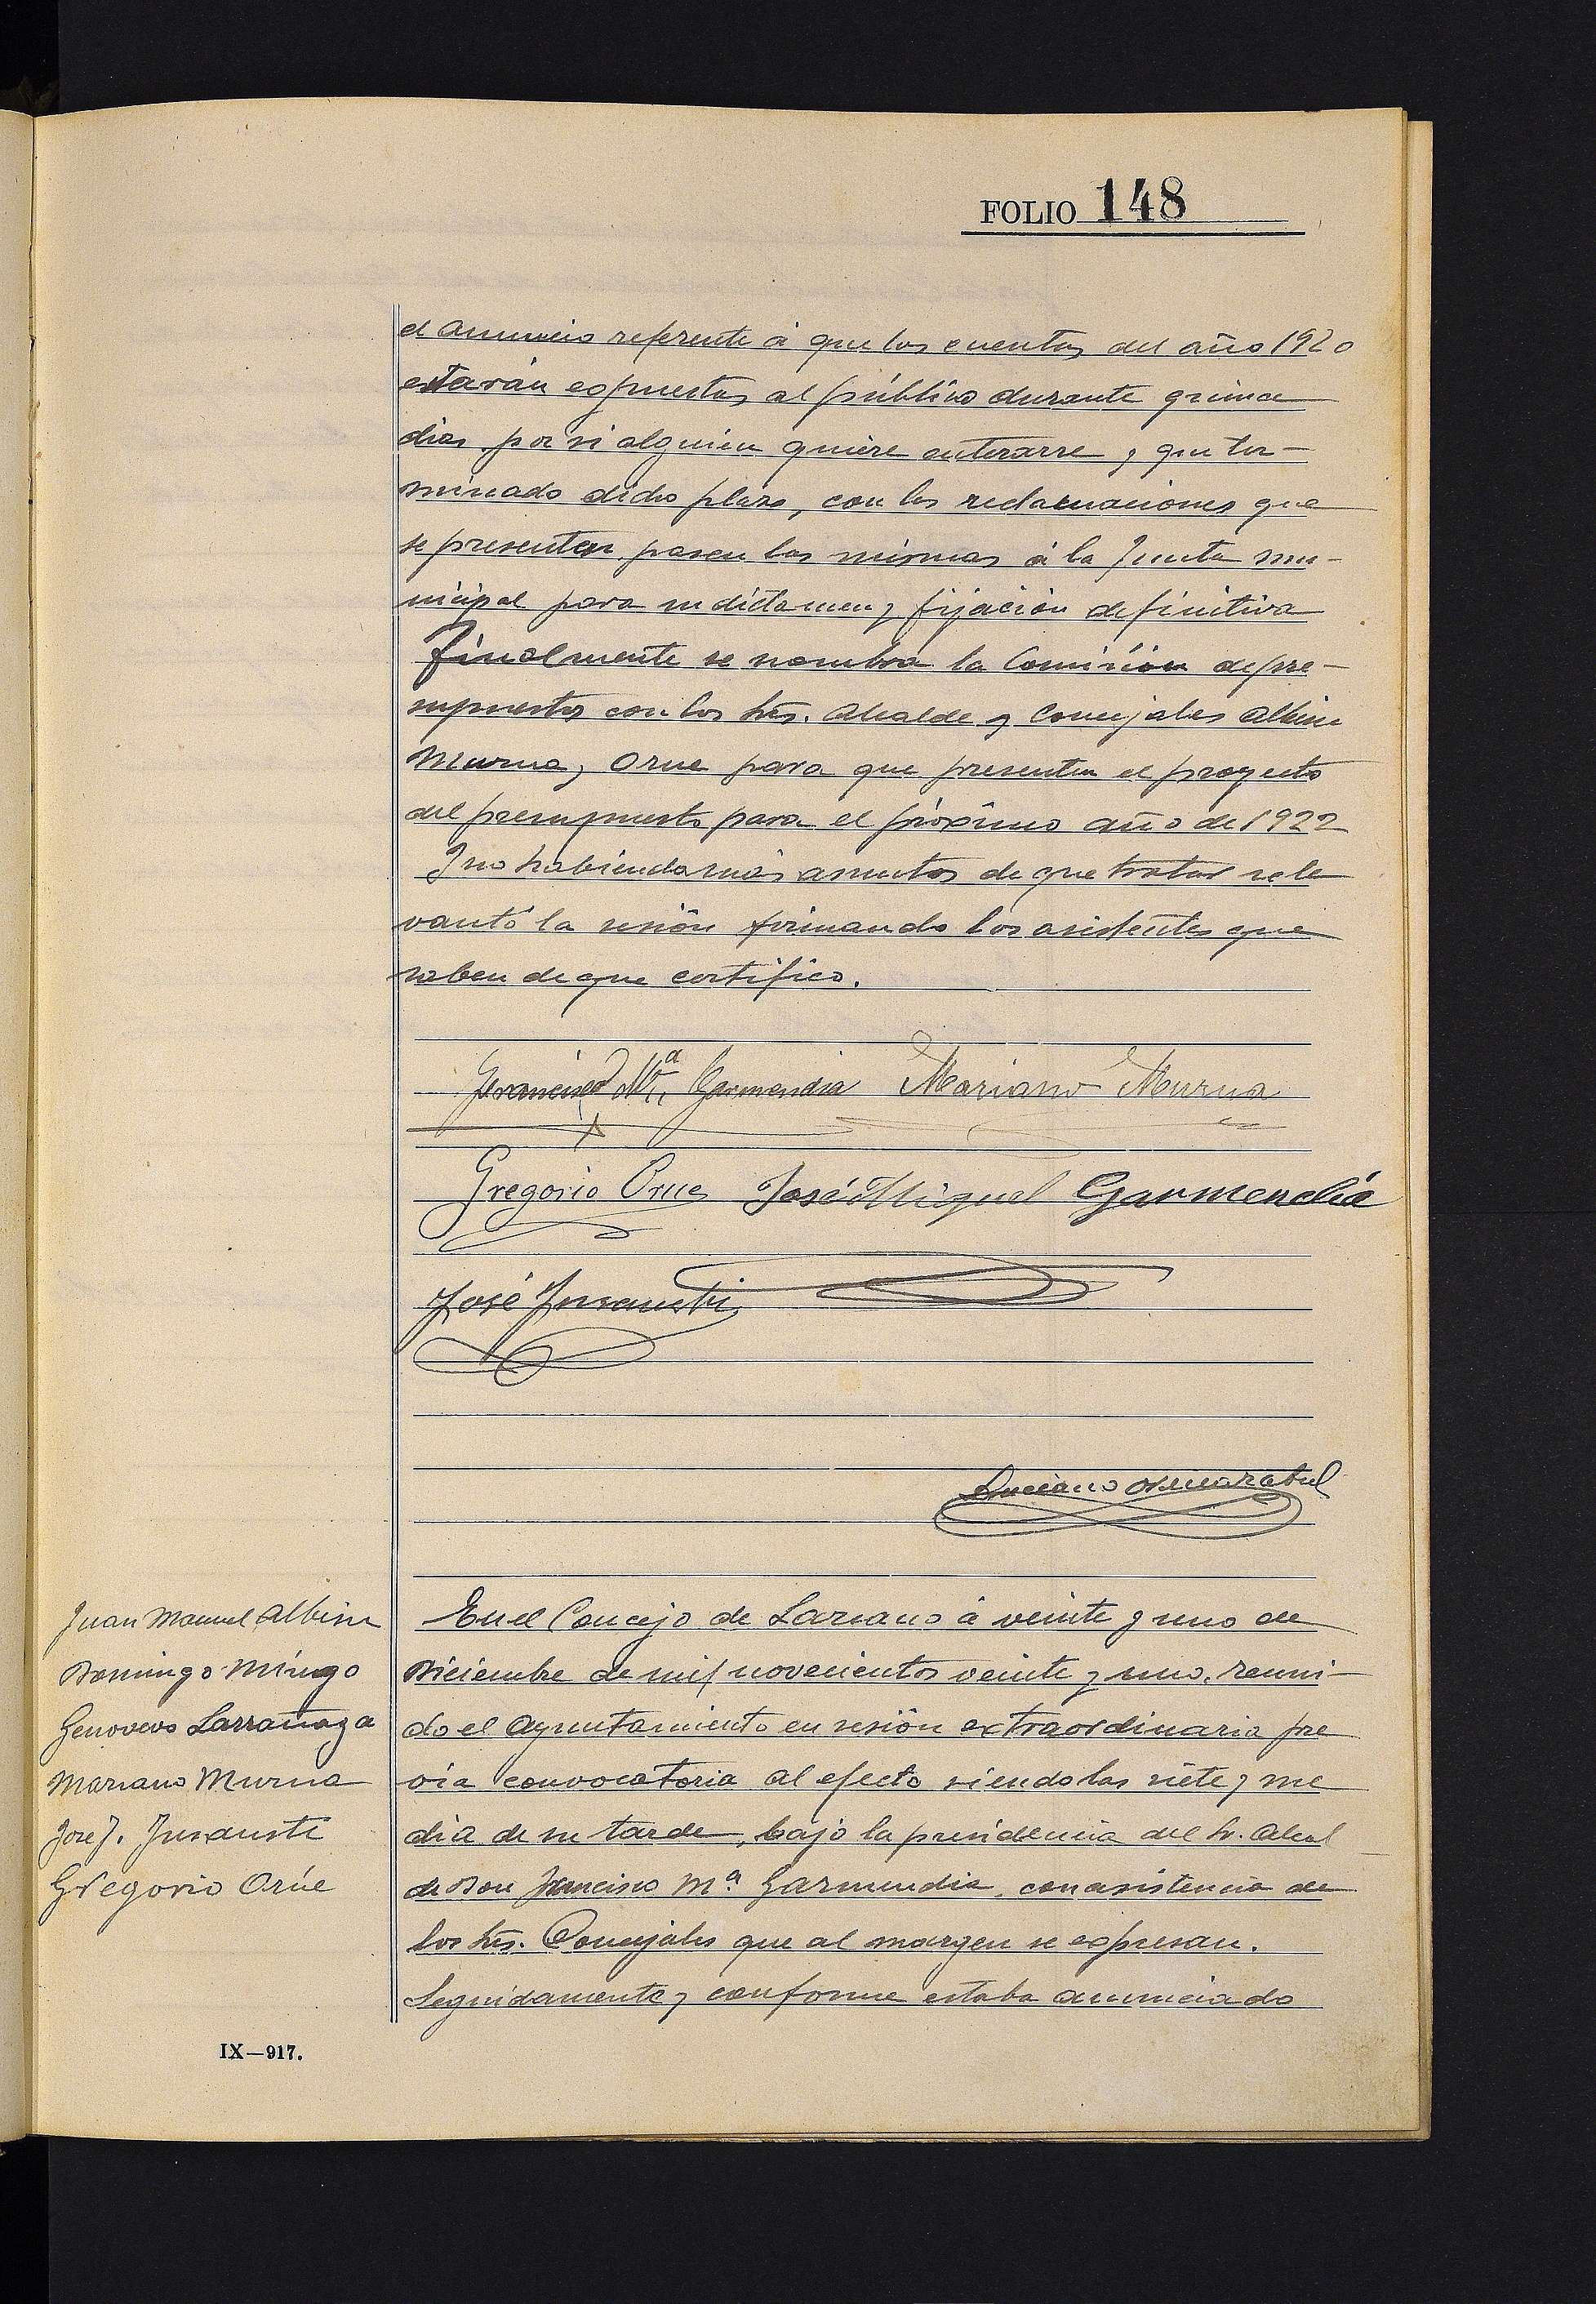 FOLIO 148
el anuncio referente á que las cuentas del año 1920
estarán expuestas al público durante quince
dias por si alguien quiere enterarse y que ter-
minado dicho plazo, con las reclamaciones que
se presenten, pasen las mismas á la Junta mu-
nicipal para su dictamen y fijación definitiva
Finalmente se nombra la Comisión de pre-
supuestos con los Srs. Alcalde y Concejales Albisu
Murua, Orue para que presenten el proyecto
del presupuesto para el próximo año de 1922
Y no habiendo más asuntos de que tratar se le
vantó la sesión firmando los asistentes que
saben de que certifico.
Francisco Mª Garmendia Mariano Murua
Gregorio Orue José Miguel Garmendia
José Insausti
Luciano
Juan Manuel Albisu
Domingo Mingo
Genoveva Larrañaga
Mariano Murua
José J. Insausti
Gregorio Orúe
En el Concejo de Lazcano á veinte y uno de
Diciembre de mil novecientos veinte y uno, reuni-
do el Ayuntamiento en sesión extraordinaria pre
via convocatoria al efecto siendo las siete y me
dia de su tarde, bajo la presidencia del Sr. Alcal
de Don Francisco Mª Garmendia, con asistencia de
los Srs. Concejales que al margen se expresan.
Seguidamente y conforme estaba anunciado
IX—917.